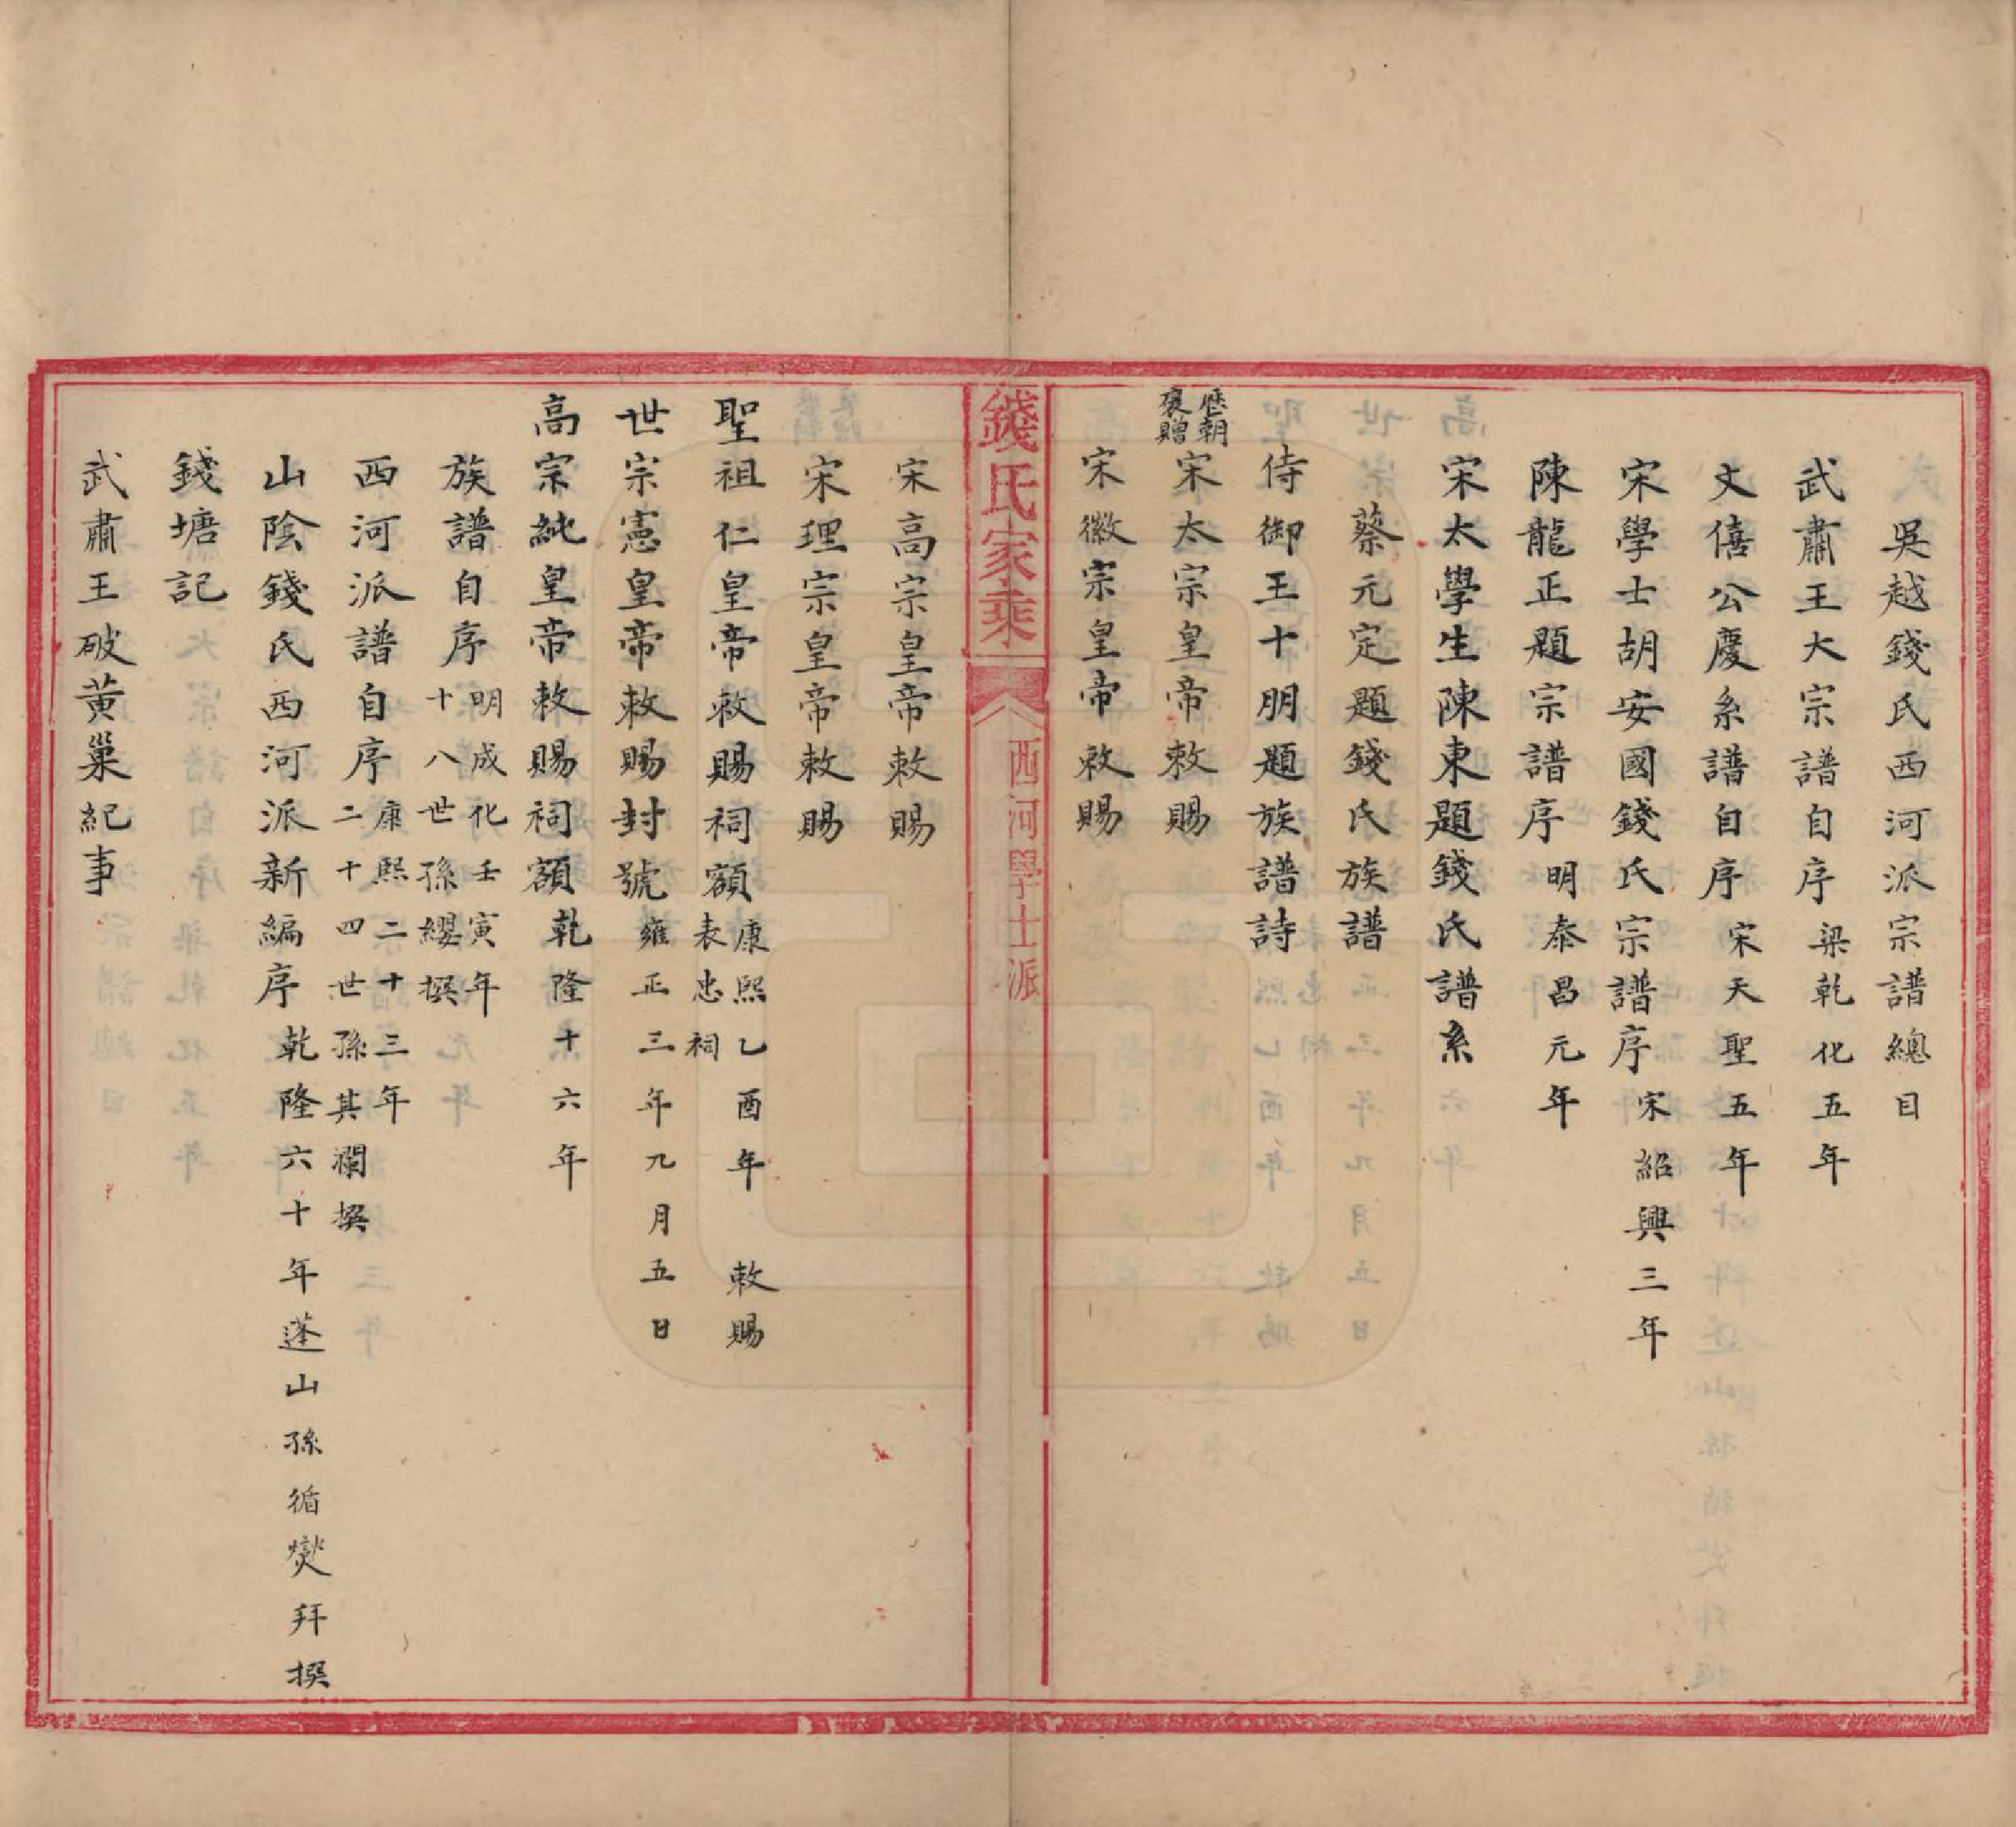 吳越錢氏西河派宗譜總目
武肅王大宗譜自序 梁乾化五年
文僖公慶系譜自序 宋天聖五年
宋學士胡安國錢氏宗譜序 宋紹興三年
陳龍正題宗譜序 明泰昌元年
宋太學生陳東題錢氏譜系
蔡元定題錢氏族譜
侍御王十朋題族譜詩
歷朝
褒贈
宋太宗皇帝敕賜
宋徽宗皇帝敕賜
錢氏家乘
西河學士派
宋高宗皇帝敕賜
宋理宗皇帝敕賜
聖祖仁皇帝敕賜祠額 康熙乙酉年 敕賜
表忠祠
世宗憲皇帝敕賜封號 雍正三年九月五日
高宗純皇帝敕賜祠額 乾隆十六年
族譜自序 明成化壬寅年
十八世孫纓撰
西河派譜自序 康熙二十三年
二十四世孫其瀾撰
山陰錢氏西河派新編序 乾隆六十年蓬山孫循燮拜撰
錢塘記
武肅王破黃巢紀事